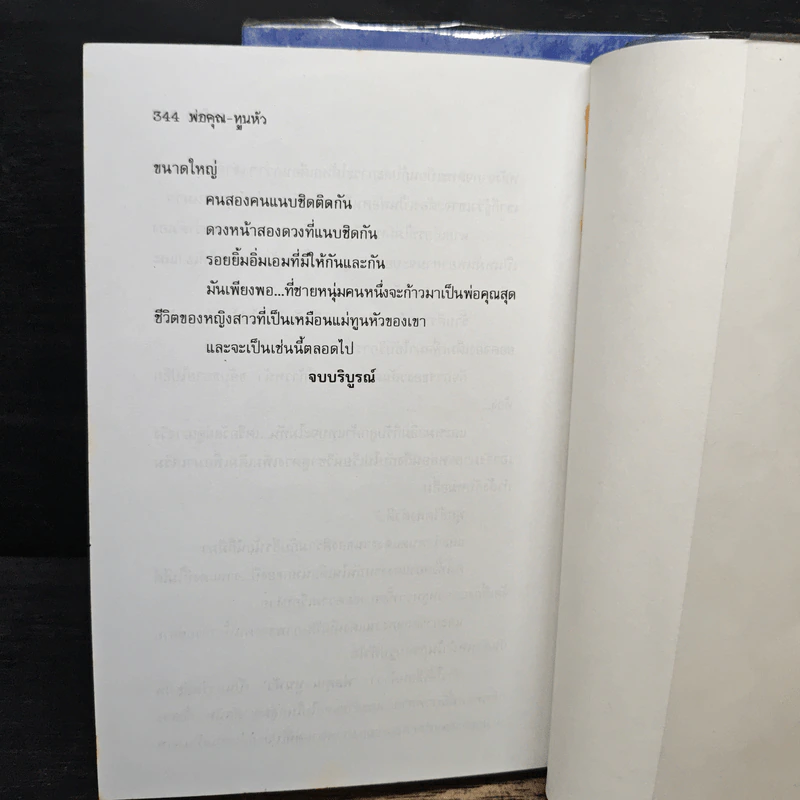 344 พ่อคุณ-ทูนหัว
ขนาดใหญ่
คนสองคนแนบชิดติดกัน
ดวงหน้าสองดวงที่แนบชิดกัน
รอยยิ้มอิ่มเอมที่มีให้กันและกัน
มันเพียงพอ...ที่ชายหนุ่มคนหนึ่งจะก้าวมาเป็นพ่อคุณสุด
ชีวิตของหญิงสาวที่เป็นเหมือนแม่ทูนหัวของเขา
และจะเป็นเช่นนี้ตลอดไป
จบบริบูรณ์